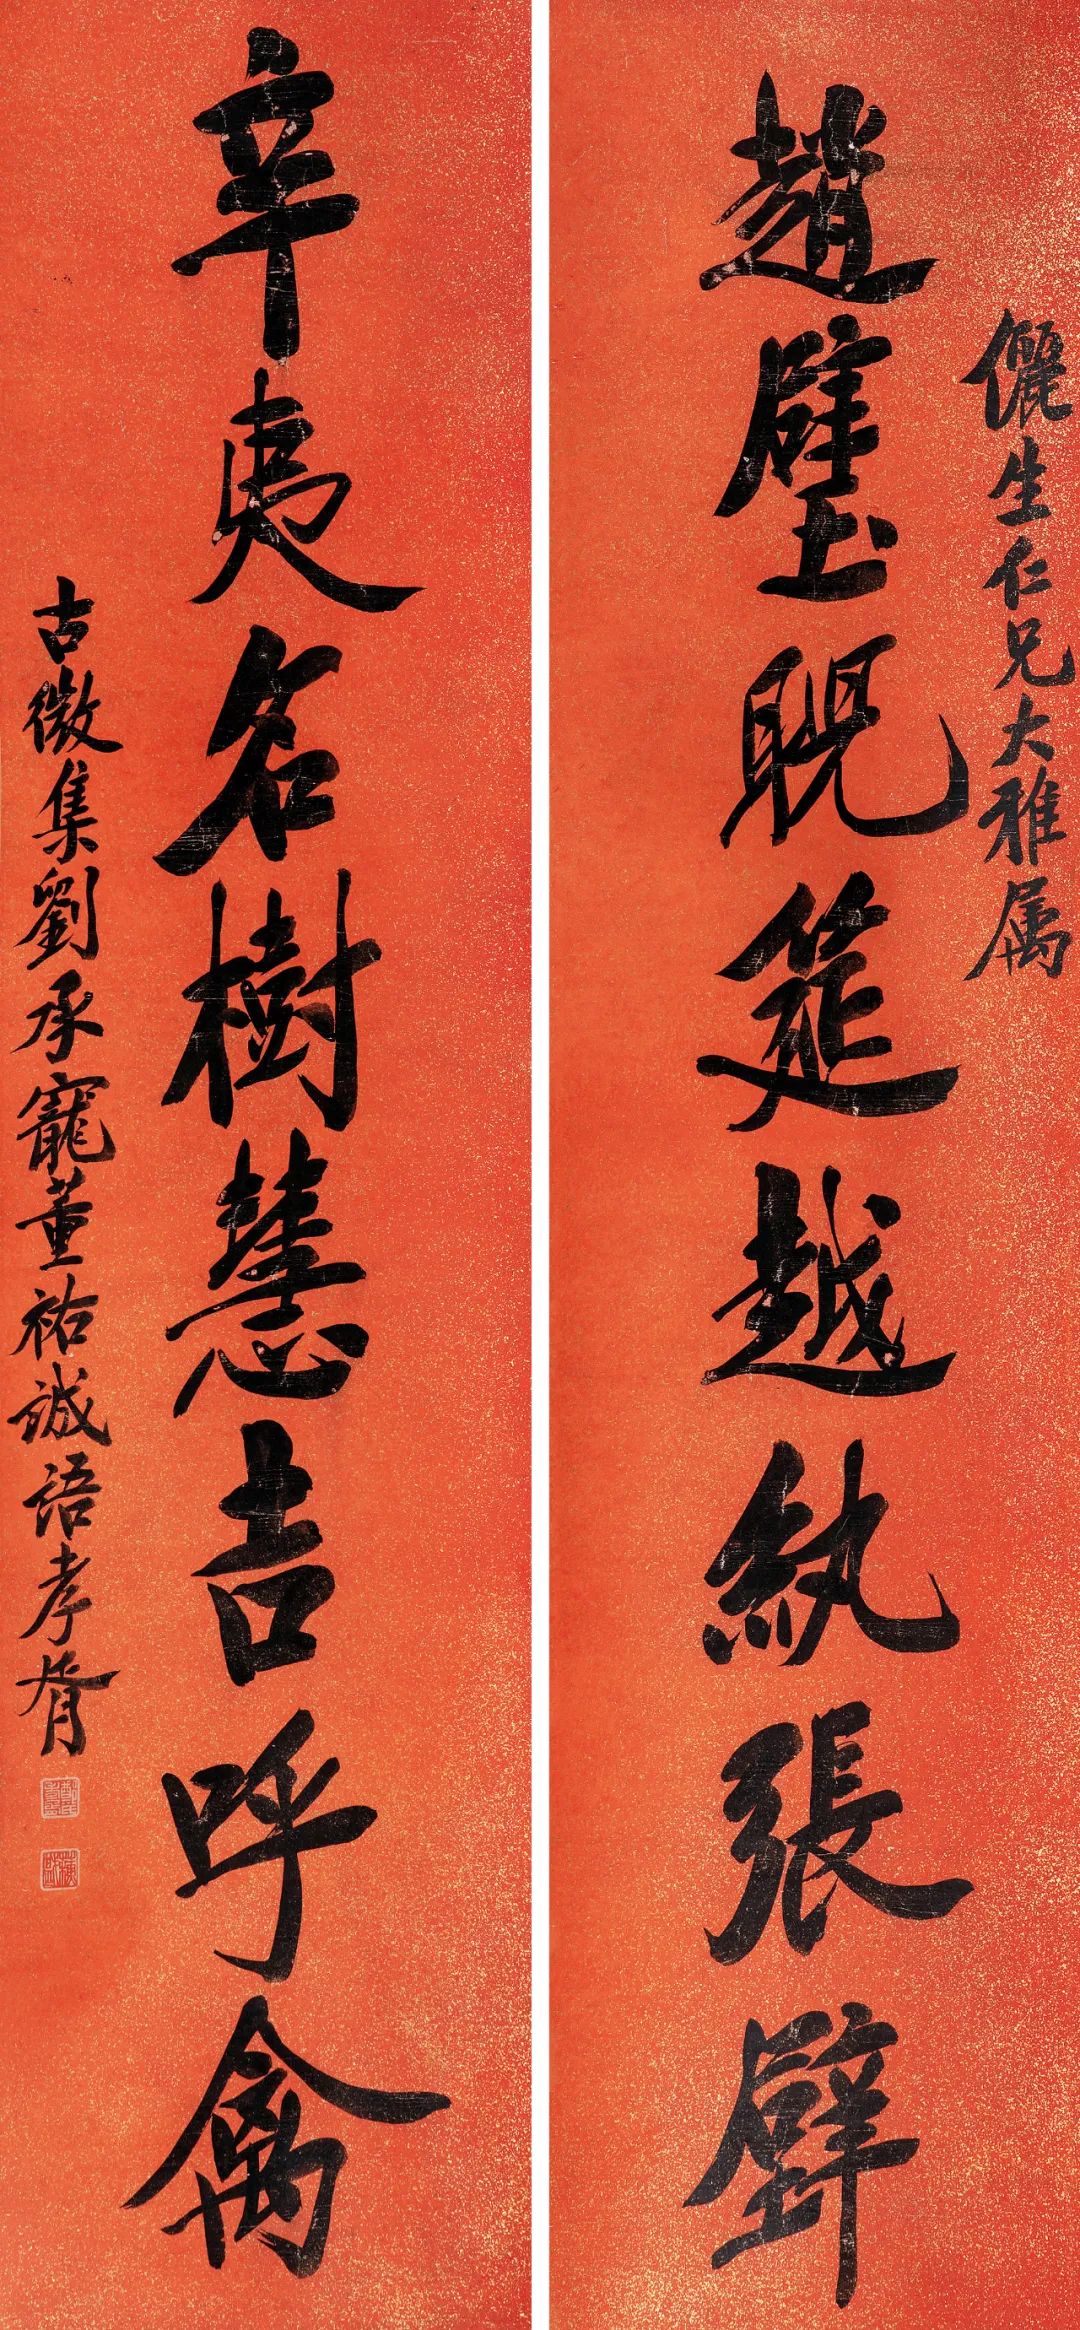 儷生仁兄大雅属
趙璧睨筵越紈張壁
辛夷名樹慧吉呼禽
古微集劉承寵董祐誠語孝胥